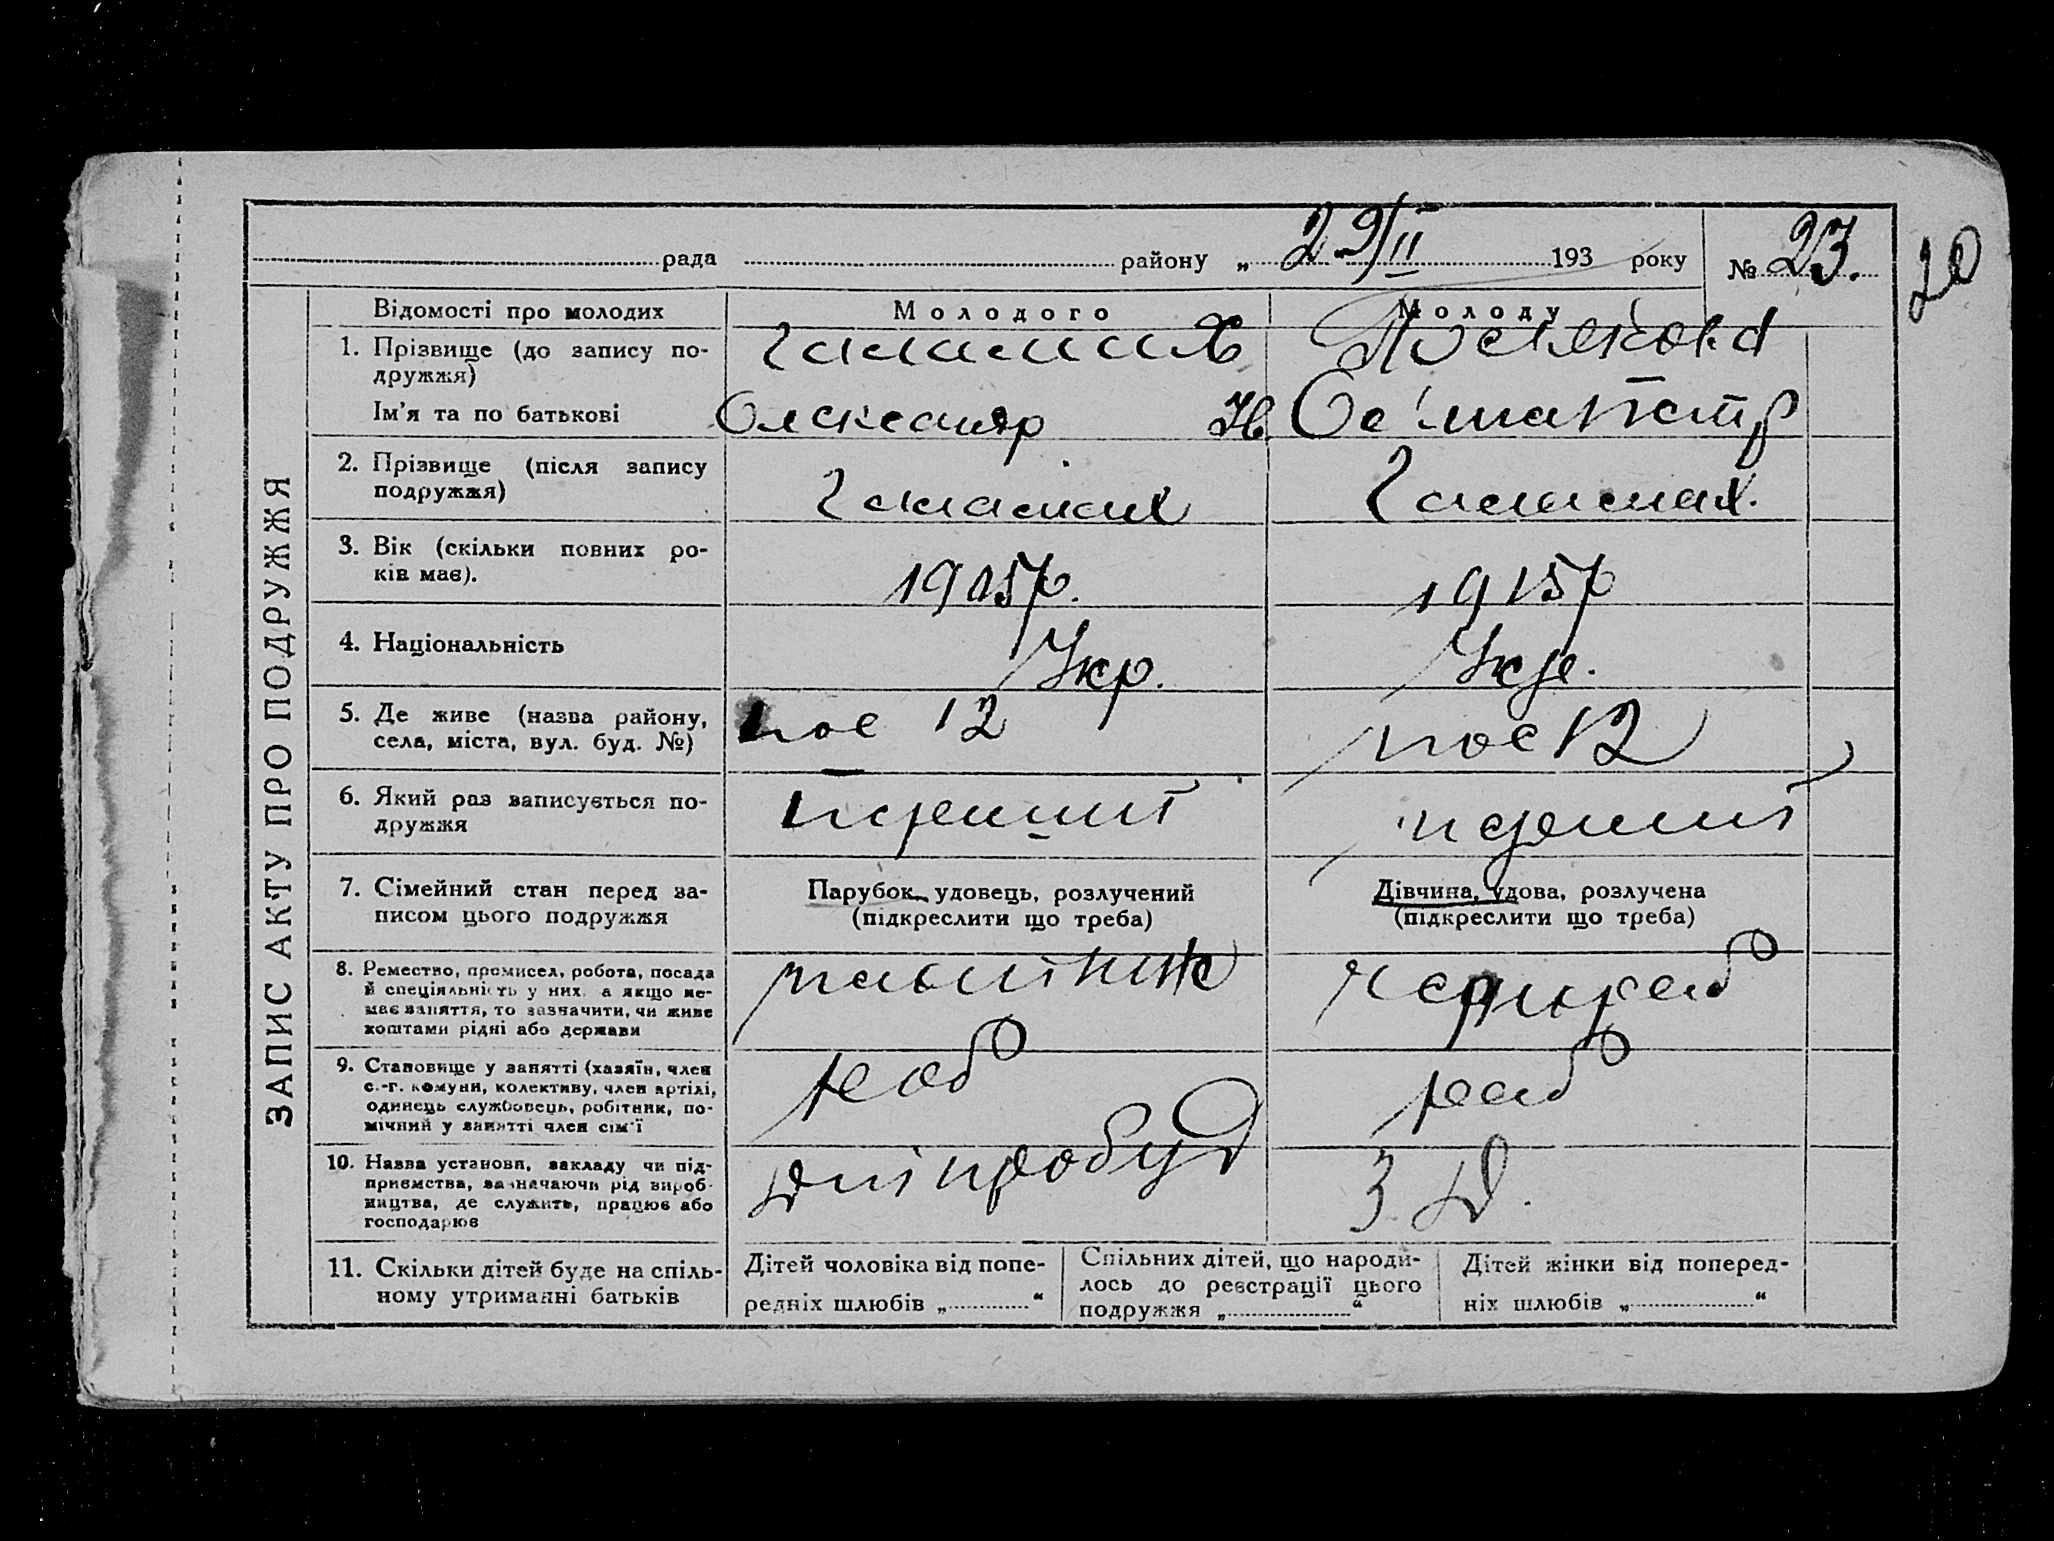 рада району „ 29/II 193 року № 23.
20
ЗАПИС АКТУ ПРО ПОДРУЖЖЯ
Відомості про молодих
Молодого
Молоду
1. Прізвище (до запису по-
дружжя)
Ім'я та по батькові
Олександр Ив.
2. Прізвище (після запису
подружжя)
3. Вік (скільки повних ро-
ків має).
1915р.
1915р
4. Національність
Укр.
Укр.
5. Де живе (назва району,
села, міста, вул. буд. №)
пос 12
пос 12
6. Який раз записується по-
дружжя
перший
перший
7. Сімейний стан перед за-
писом цього подружжя
Парубок, удовець, розлучений
(підкреслити що треба)
Дівчина, удова, розлучена
(підкреслити що треба)
8. Ремество, промисел, робота, посада
й спеціяльність у них, а якщо не-
має заняття, то зазначити, чи живе
коштами рідні або держави
чернороб
9. Становище у занятті (хазяїн, член
с.-г. комуни, колективу, член артілі,
одинець службовець, робітник, по-
мічний у занятті член сім'ї
роб
раб
10. Назва установи, закладу чи під-
приємства, зазначаючи рід вироб-
ництва, де служить, працює або
господарює
Дніпробуд
З. Д.
11. Скільки дітей буде на спіль-
ному утриманні батьків
Дітей чоловіка від попе-
редніх шлюбів „ “
Спільних дітей, що народи-
лось до реєстрації цього
подружжя „ “
Дітей жінки від поперед-
ніх шлюбів „ “